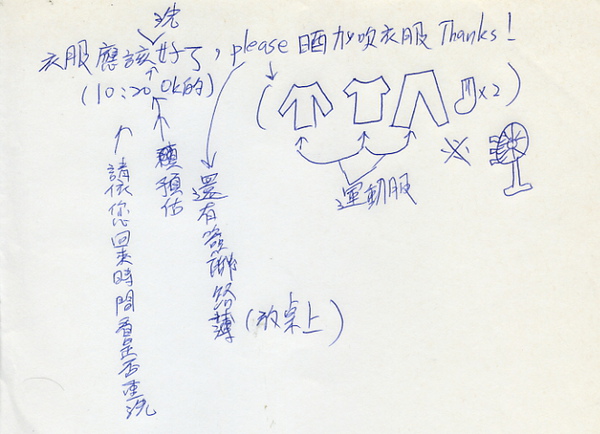 洗
衣服應該好了, please 晒加吹衣服 Thanks!
(10:20 ok的)
( x2)
※
運動服
預估
還有簽聯絡薄 (放桌上)
請依您回來時間看是否重洗